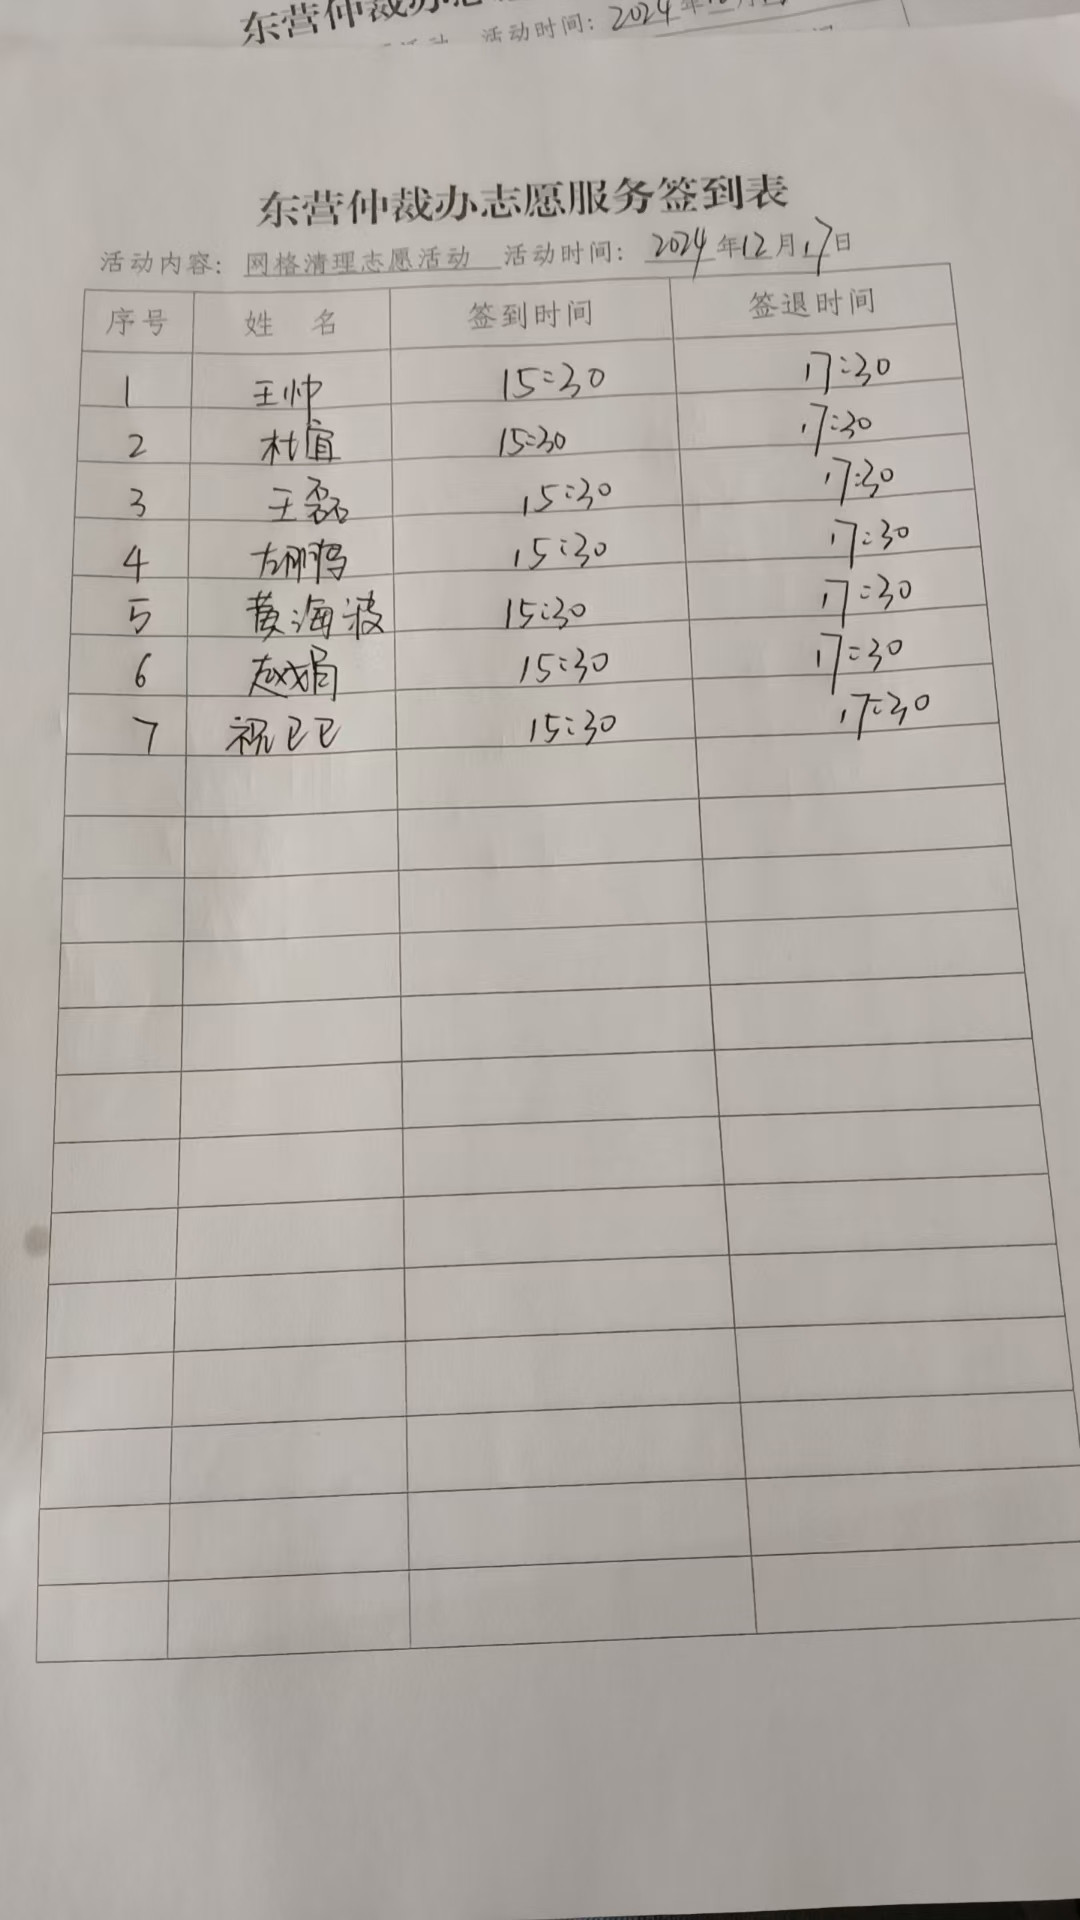 东营仲裁办志
活动时间：2024年
东营仲裁办志愿服务签到表
活动内容：网格清理志愿活动 活动时间：2024年12月17日
序号 姓名 签到时间 签退时间
1 王帅 15:30 17:30
2 杜宜 15:30 17:30
3 王磊 15:30 17:30
4 左鹏鹏 15:30 17:30
5 黄海波 15:30 17:30
6 赵娟 15:30 17:30
7 祝巳巳 15:30 17:30